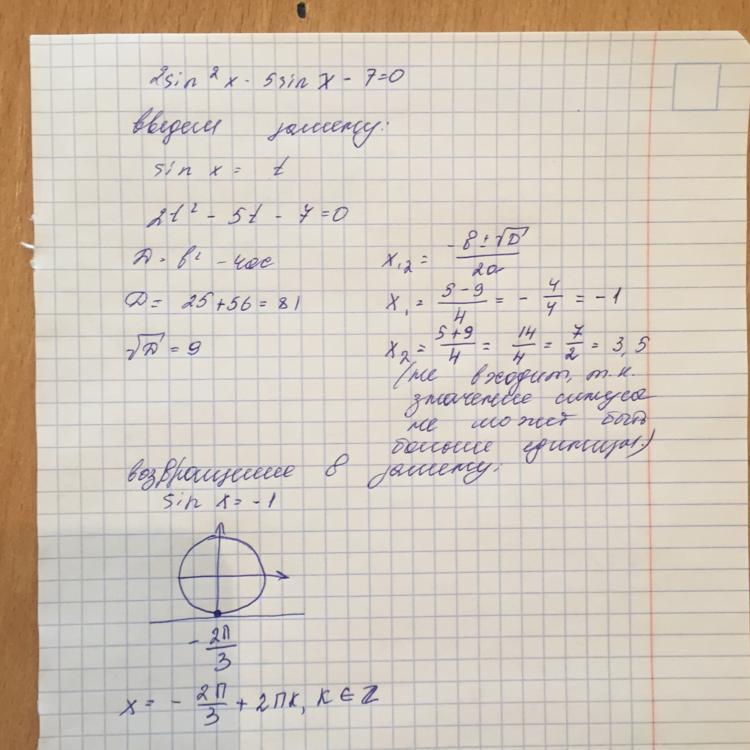 2sin²x - 5sinx - 7=0
введем замену:
sin x = t
2t² - 5t - 7=0
D = b² - 4ac
D = 25+56=81
√D = 9
x₁,₂ = (-b±√D)/2a
x₁ = (5-9)/4 = -4/4 = -1
x₂ = (5+9)/4 = 14/4 = 7/2 = 3,5
(не входит, т.к.
значение синуса
не может быть
больше единицы.)
возвращение в замену:
sin x = -1
-2π/3
x = -2π/3 + 2πk, k∈Z